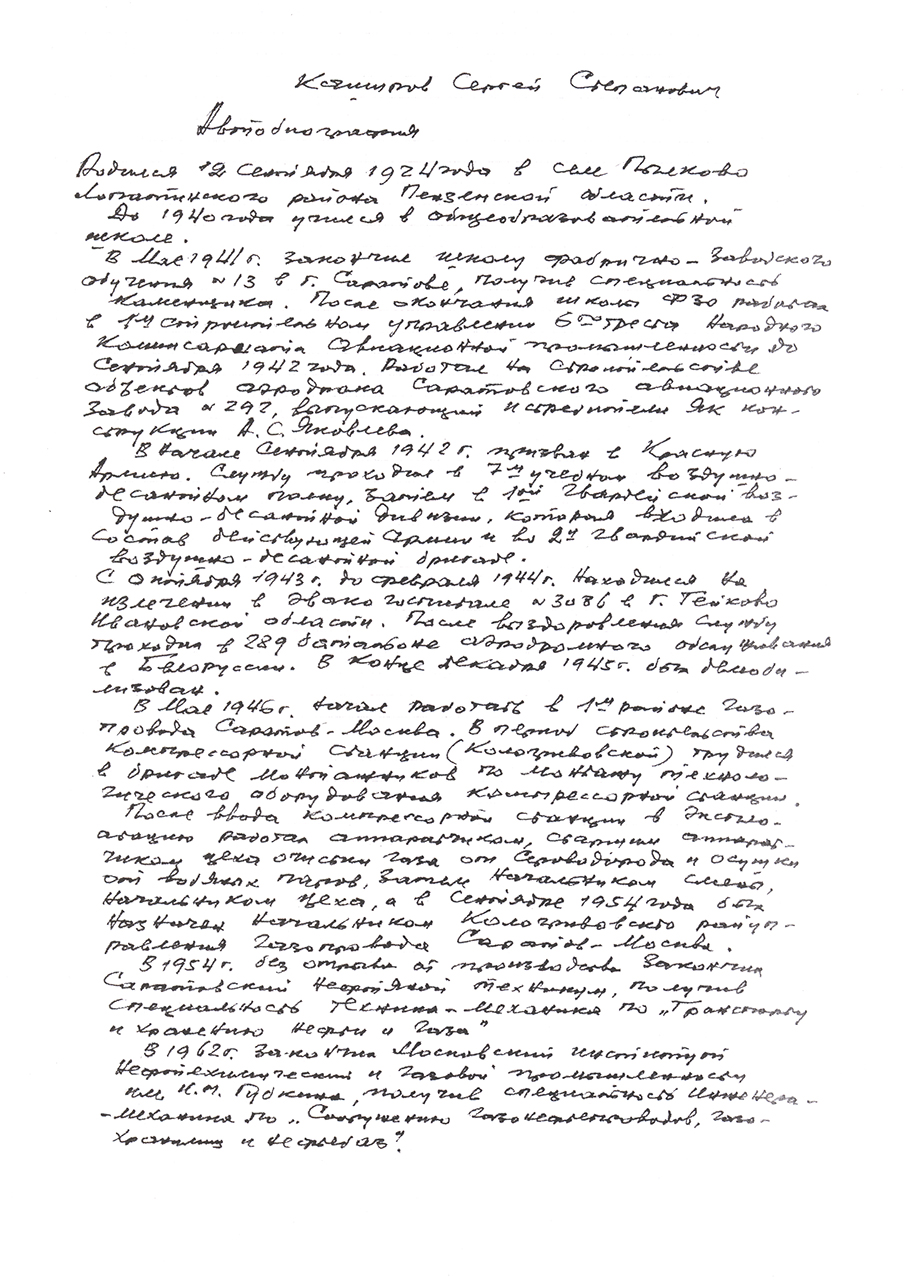 Сергей Степанович
Автобиография
Родился 12 Сентября 1924 года в селе
Лопатинского района Пензенской области.
До 1940 года учился в общеобразовательной
школе.
В Мае 1941 г. закончил школу фабрично-Заводского
обучения №13 в г. Саратове, получив специальность
каменщика. После окончания школы ФЗО работал
в 1м строительном управлении 6го треста Народного
Комиссариата Авиационной промышленности до
Сентября 1942 года. Работал на строительстве
объектов аэродрома Саратовского авиационного
завода №292, выпускающий истребители Як кон-
струкции А.С. Яковлева.
В начале Сентября 1942 г. призван в Красную
Армию. Службу проходил в 7м учебном воздушно-
десантном полку, затем в 1ой Гвардейской воз-
душно-десантной дивизии, которая входила в
состав действующей Армии и во 2й Гвардийской
воздушно-десантной бригаде.
С Октября 1943 г. до февраля 1944 г. находился на
излечении в эвакогоспитале №3086 в г. Тейково
Ивановской области. После выздоровления службу
проходил в 289 батальоне аэродромного обслуживания
в Белоруссии. В конце декабря 1945 г. был демоби-
лизован.
В Мае 1946 г. начал работать в 1м районе газо-
провода Саратов-Москва. В период строительства
компрессорной станции (Кологривовской) трудился
в бригаде монтажников по монтажу техноло-
гического оборудования компрессорной станции.
После ввода компрессорной станции в эксплу-
атацию работал аппаратчиком, старшим аппарат-
чиком цеха очистки газа от сероводорода и осушки
от водяных паров, затем начальником смены,
начальником цеха, а в Сентябре 1954 года был
назначен начальником Кологривовского райуп-
равления газопровода Саратов-Москва.
В 1954 г. без отрыва от производства закончил
Саратовский нефтяной техникум, получив
специальность техника-механика по „Транспорту
и хранению нефти и газа"
В 1962 г. закончил Московский институт
Нефтехимический и газовой промышленности
им. И.М. Губкина, получив специальность Инженера-
-механика по „Сооружению газонефтепроводов, газо-
хранилищ и нефтебаз".